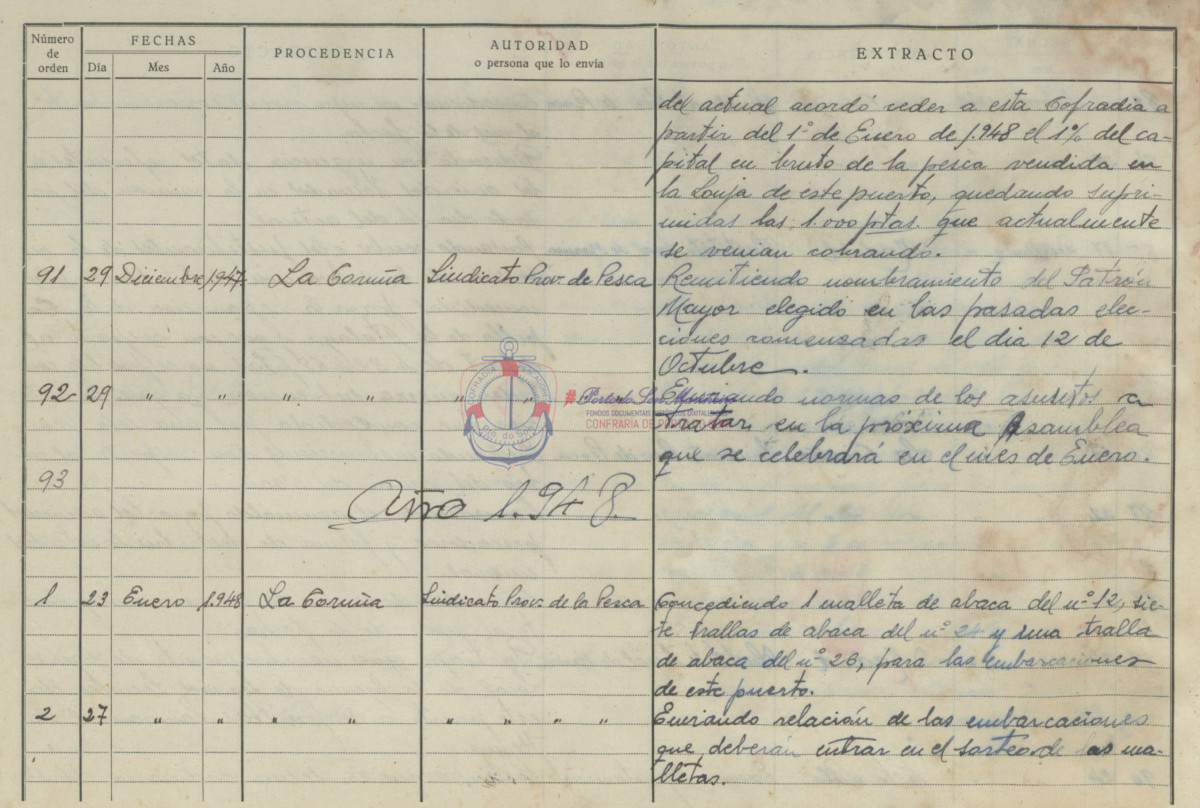 Número de orden
FECHAS
Día
Mes
Año
PROCEDENCIA
AUTORIDAD
o persona que lo envía
EXTRACTO
del actual acordó ceder a esta Cofradia a
partir del 1º de Enero de 1.948 el 1% del ca-
pital en bruto de la pesca vendida en
la Lonja de este puerto, quedando supri-
midas las 1.000 ptas. que actualmente
se venian cobrando.
91 29 Diciembre 1.947. La Coruña Sindicato Prov. de Pesca Remitiendo nombramiento del Patrón
Mayor elegido en las pasadas elec-
ciones comenzadas el dia 12 de
Octubre.
92 29 " " " " " " " Enviando normas de los asuntos a
tratar en la próxima Asamblea
que se celebrará en el mes de Enero.
93
Año 1.948.
1 23 Enero 1.948 La Coruña Sindicato Prov. de la Pesca Concediendo 1 malleta de abaca del nº 12, sie-
te trallas de abaca del nº 24 y una tralla
de abaca del nº 26, para las embarcaciones
de este puerto.
2 27 " " " " " " " " Enviando relación de las embarcaciones
que deberán entrar en el sorteo de las ma-
lletas.
COFRADIA
PESCADORES
Pto. do Son
#PortodoSonMariñeiro
FONDOS DOCUMENTAIS DIGITALIZADOS
CONFRARÍA DE PORTO DO SON